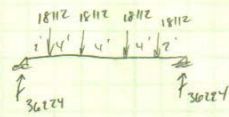 18112 18112 18112 18112
2' 4' 4' 4' 2'
36224 36224